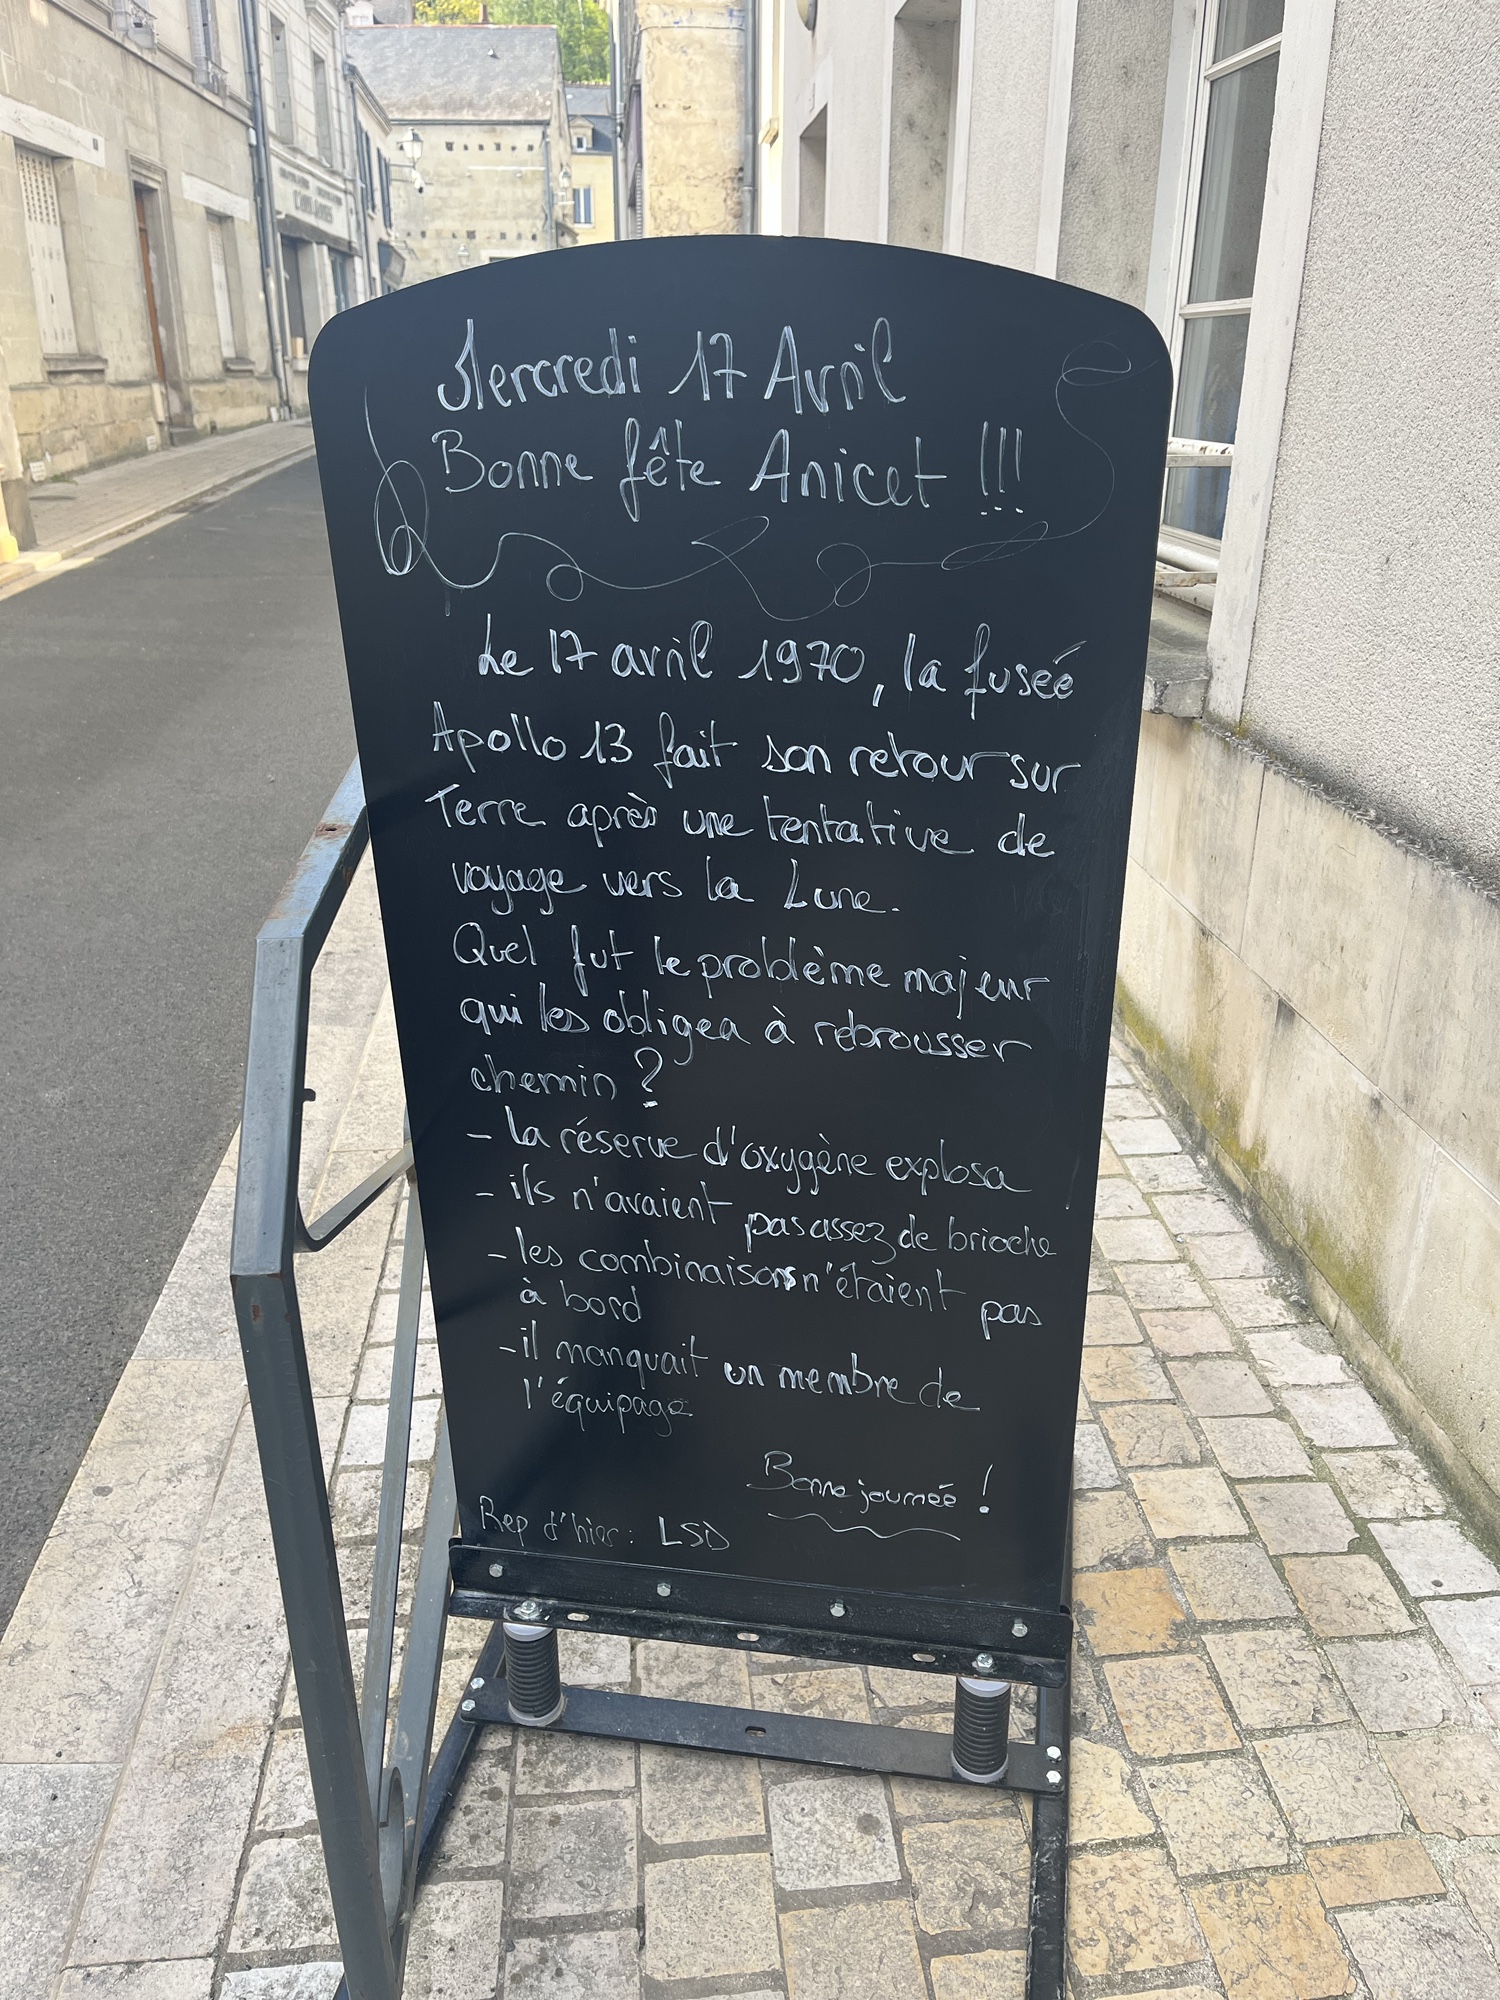 Mercredi 17 Avril
Bonne fête Anicet !!!
Le 17 avril 1970, la fusée
Apollo 13 fait son retour sur
Terre après une tentative de
voyage vers la Lune.
Quel fut le problème majeur
qui les obligea à rebrousser
chemin ?
- La réserve d'oxygène explosa
- ils n'avaient pas assez de brioche
- les combinaisons n'étaient pas
à bord
- il manquait un membre de
l'équipage
Bonne journée !
Rep d'hier : LSD